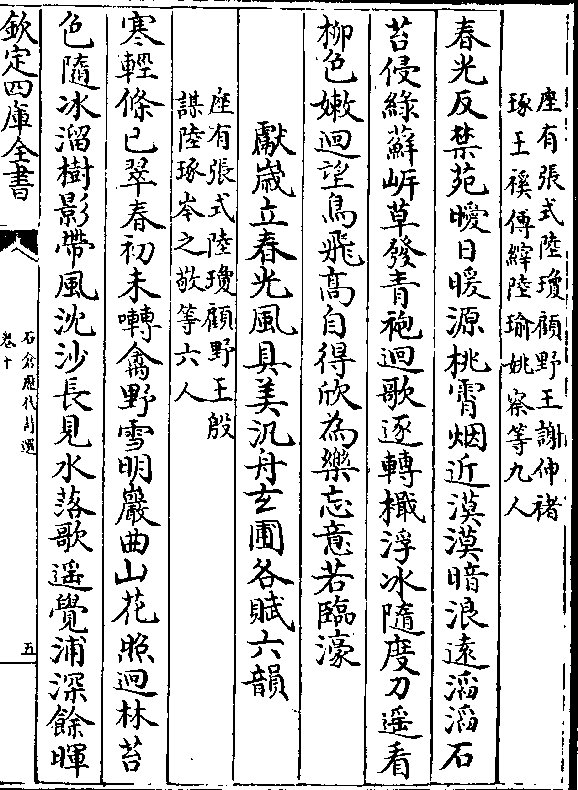 座有張式陸瓊顧野王謝伸褚
琢王㒞傅縡陸瑜姚察等九人
春光反禁苑曖日暖源桃霄烟近漠漠暗浪遠滔滔石
苔侵綠蘚㟁草發青袍迴歌逐轉檝浮冰隨度刀遥看
柳色嫩迴望鳥飛高自得欣為樂忘意若臨濠
獻嵗立春光風具美汎舟玄圃各賦六韻
座有張式陸瓊顧野王殷
謀陸琢岑之敬等六人
寒輕條已翠春初未囀禽野雪明巖曲山花照迥林苔
色隨冰溜樹影帶風沈沙長見水落歌遥覺浦深餘暉
欽定四庫全書
石倉歷代詩選
卷十
五